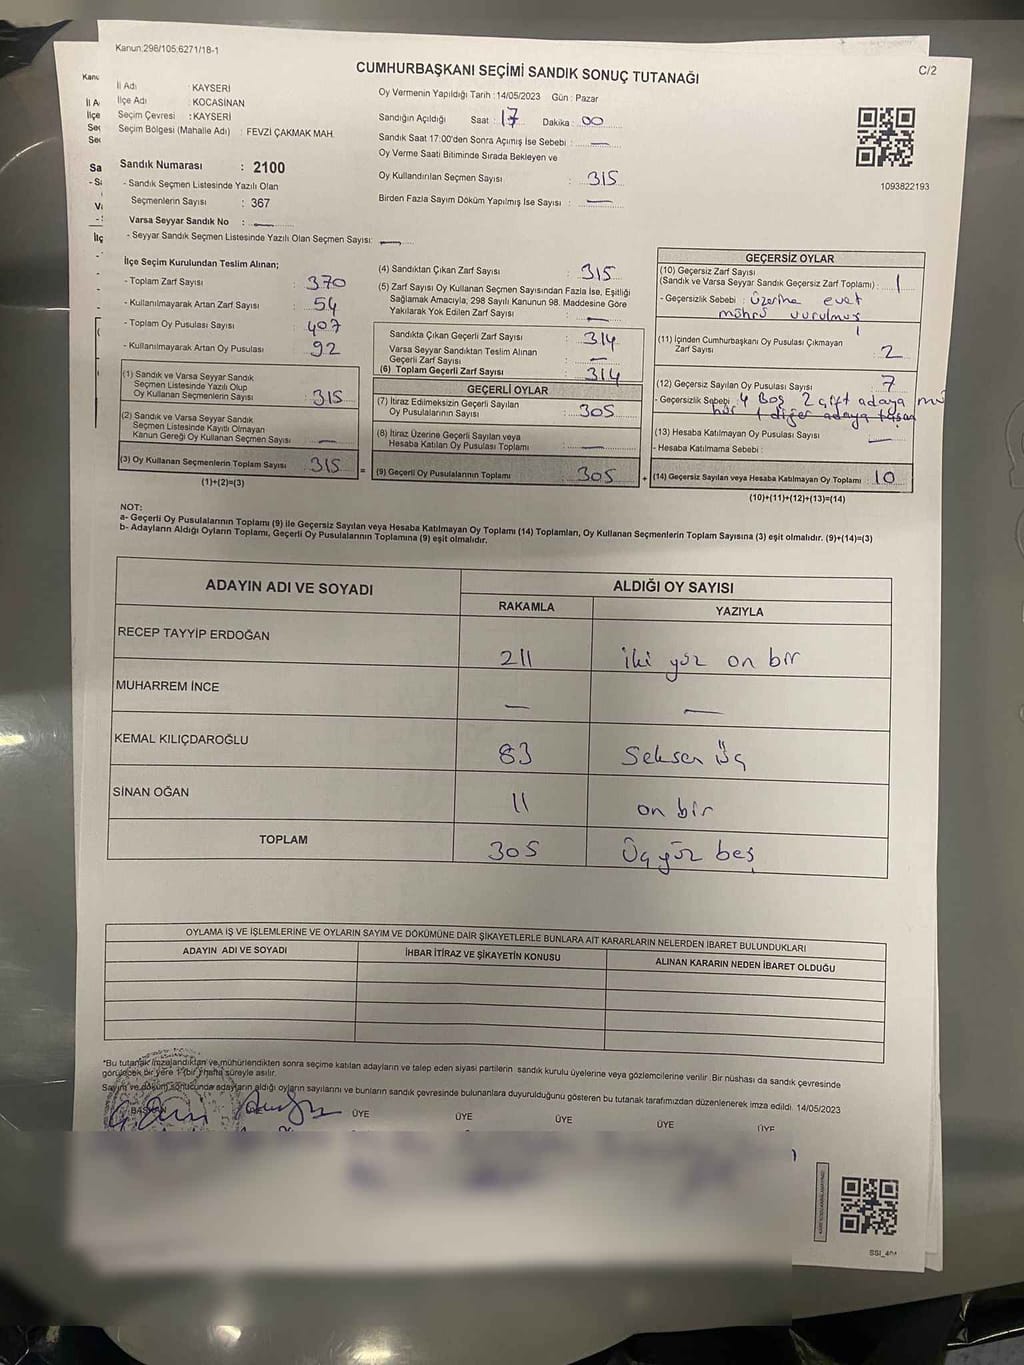 Kanun:298/105,6271/18-1
C/2
CUMHURBAŞKANI SEÇİMİ SANDIK SONUÇ TUTANAĞI
İl Adı : KAYSERİ
İlçe Adı : KOCASİNAN
Seçim Çevresi : KAYSERİ
Seçim Bölgesi (Mahalle Adı) : FEVZİ ÇAKMAK MAH.
Sandık Numarası : 2100
- Sandık Seçmen Listesinde Yazılı Olan
Seçmenlerin Sayısı : 367
Varsa Seyyar Sandık No : —
- Seyyar Sandık Seçmen Listesinde Yazılı Olan Seçmen Sayısı: —
Oy Vermenin Yapıldığı Tarih : 14/05/2023 Gün : Pazar
Sandığın Açıldığı Saat : 17 Dakika : 00
Sandık Saat 17:00'den Sonra Açımış İse Sebebi : —
Oy Verme Saati Bitiminde Sırada Bekleyen ve
Oy Kullandırılan Seçmen Sayısı : 315
Birden Fazla Sayım Döküm Yapılmış İse Sayısı : —
1093822193
İlçe Seçim Kurulundan Teslim Alınan;
- Toplam Zarf Sayısı : 370
- Kullanılmayarak Artan Zarf Sayısı : 54
- Toplam Oy Pusulası Sayısı : 407
- Kullanılmayarak Artan Oy Pusulası : 92
(1) Sandık ve Varsa Seyyar Sandık
Seçmen Listesinde Yazılı Olup
Oy Kullanan Seçmenlerin Sayısı : 315
(2) Sandık ve Varsa Seyyar Sandık
Seçmen Listesinde Kayıtlı Olmayan
Kanun Gereği Oy Kullanan Seçmen Sayısı : —
(3) Oy Kullanan Seçmenlerin Toplam Sayısı : 315
(1)+(2)=(3)
(4) Sandıktan Çıkan Zarf Sayısı : 315
(5) Zarf Sayısı Oy Kullanan Seçmen Sayısından Fazla İse, Eşitliği
Sağlamak Amacıyla, 298 Sayılı Kanunun 98. Maddesine Göre
Yakılarak Yok Edilen Zarf Sayısı : —
Sandıkta Çıkan Geçerli Zarf Sayısı : 314
Varsa Seyyar Sandıktan Teslim Alınan
Geçerli Zarf Sayısı : —
(6) Toplam Geçerli Zarf Sayısı : 314
GEÇERLİ OYLAR
(7) İtiraz Edilmeksizin Geçerli Sayılan
Oy Pusulalarının Sayısı : 305
(8) İtiraz Üzerine Geçerli Sayılan veya
Hesaba Katılan Oy Pusulası Toplamı : —
= (9) Geçerli Oy Pusulalarının Toplamı : 305
GEÇERSİZ OYLAR
(10) Geçersiz Zarf Sayısı
(Sandık ve Varsa Seyyar Sandık Geçersiz Zarf Toplamı) : 1
- Geçersizlik Sebebi : üzerine evet
mührü vurulmuş
(11) İçinden Cumhurbaşkanı Oy Pusulası Çıkmayan
Zarf Sayısı : 2
(12) Geçersiz Sayılan Oy Pusulası Sayısı : 7
- Geçersizlik Sebebi : 4 Boş 2 çift adaya mü
hür 1 diğer adaya taşan
(13) Hesaba Katılmayan Oy Pusulası Sayısı : —
- Hesaba Katılmama Sebebi :
+ (14) Geçersiz Sayılan veya Hesaba Katılmayan Oy Toplamı : 10
(10)+(11)+(12)+(13)=(14)
NOT:
a- Geçerli Oy Pusulalarının Toplamı (9) ile Geçersiz Sayılan veya Hesaba Katılmayan Oy Toplamı (14) Toplamları, Oy Kullanan Seçmenlerin Toplam Sayısına (3) eşit olmalıdır. (9)+(14)=(3)
b- Adayların Aldığı Oyların Toplamı, Geçerli Oy Pusulalarının Toplamına (9) eşit olmalıdır.
ADAYIN ADI VE SOYADI
ALDIĞI OY SAYISI
RAKAMLA YAZIYLA
RECEP TAYYİP ERDOĞAN 211 iki yüz on bir
MUHARREM İNCE — —
KEMAL KILIÇDAROĞLU 83 Seksen Üç
SİNAN OĞAN 11 on bir
TOPLAM 305 Üçyüz beş
OYLAMA İŞ VE İŞLEMLERİNE VE OYLARIN SAYIM VE DÖKÜMÜNE DAİR ŞİKAYETLERLE BUNLARA AİT KARARLARIN NELERDEN İBARET BULUNDUKLARI
ADAYIN ADI VE SOYADI İHBAR İTİRAZ VE ŞİKAYETİN KONUSU ALINAN KARARIN NEDEN İBARET OLDUĞU
*Bu tutanak imzalandıktan ve mühürlendikten sonra seçime katılan adayların ve talep eden siyasi partilerin sandık kurulu üyelerine veya gözlemcilerine verilir. Bir nüshası da sandık çevresinde
görülebilecek bir yere 1 (bir) hafta süreyle asılır.
Sayım ve döküm sonucunda adayların aldığı oyların sayılarını ve bunların sandık çevresinde bulunanlara duyurulduğunu gösteren bu tutanak tarafımızdan düzenlenerek imza edildi. 14/05/2023
BAŞKAN ÜYE ÜYE ÜYE ÜYE ÜYE